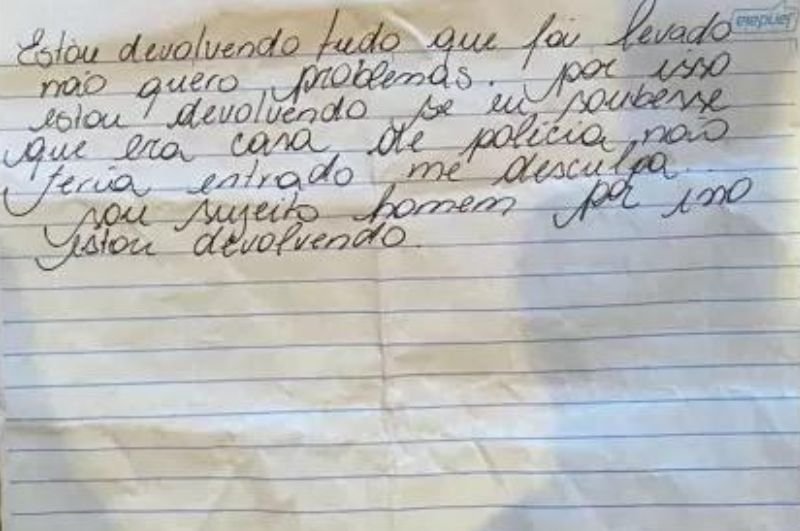 Estou devolvendo tudo que foi levado
não quero problemas. por isso
estou devolvendo se eu soubesse
que era casa de polícia, não
teria entrado me desculpa.
sou sujeito homem por isso
estou devolvendo.